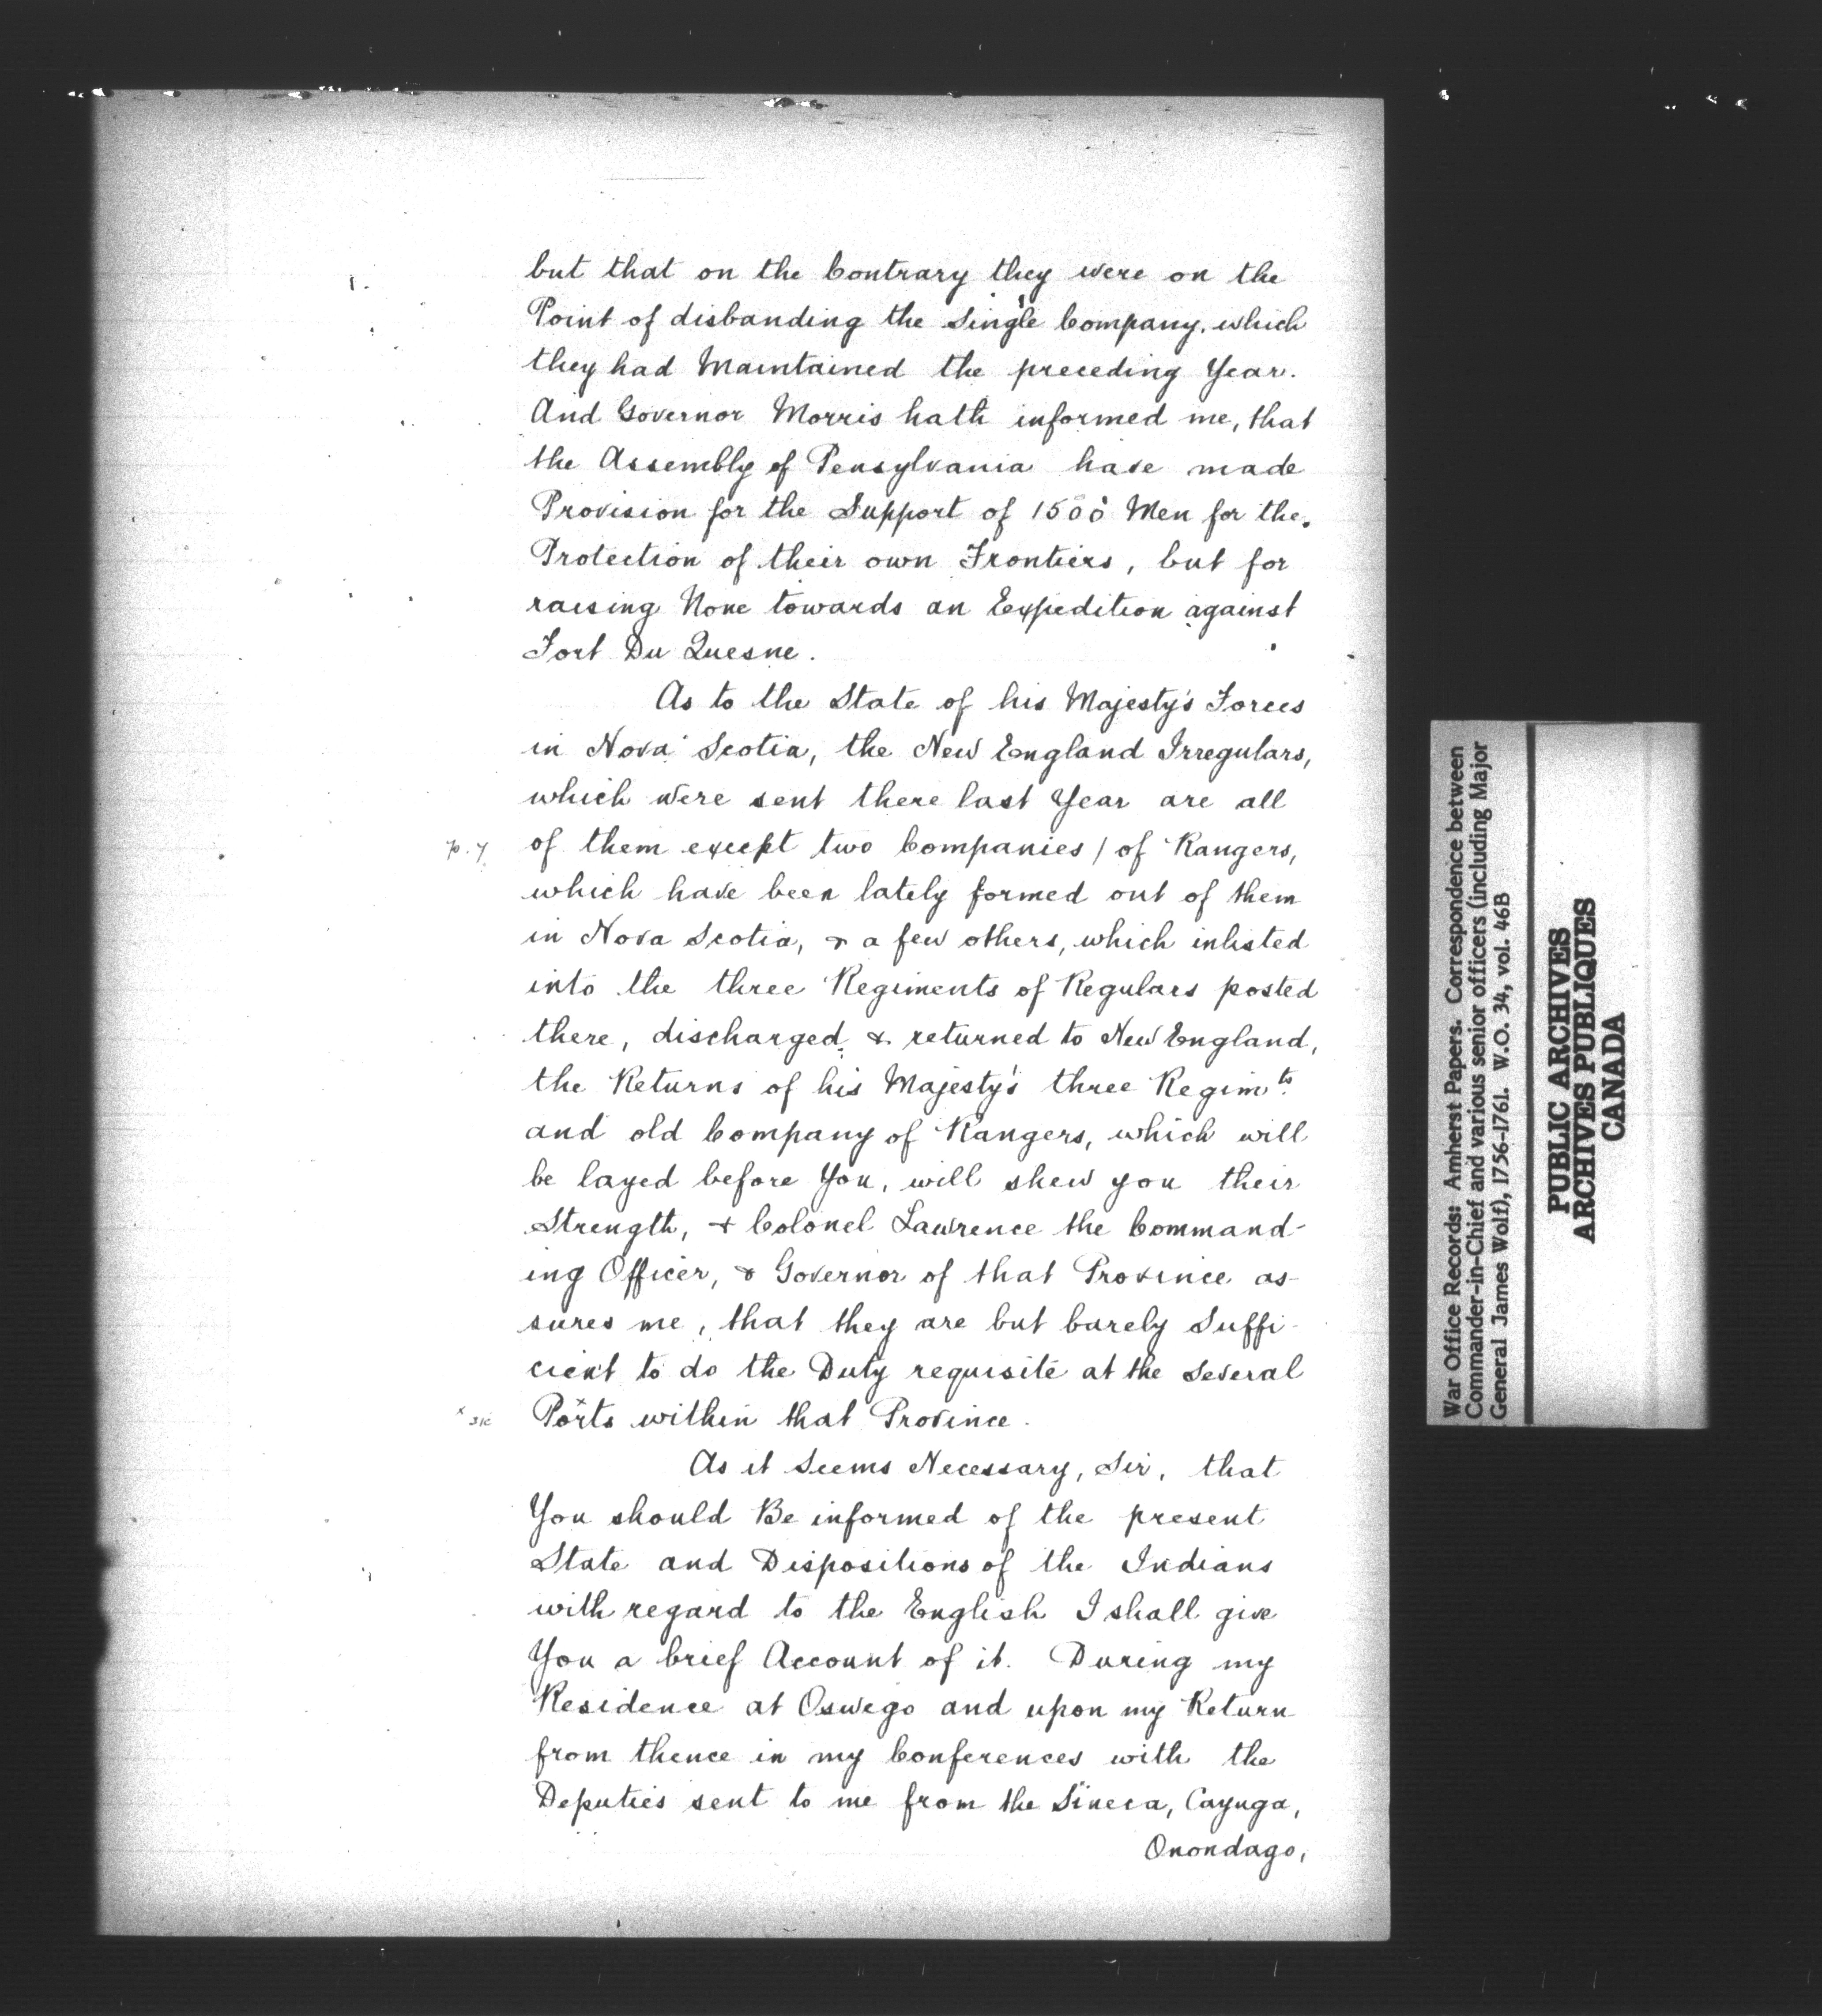 but that on the Contrary they were on the
Point of disbanding the Single Company, which
they had Maintained the preceding Year.
And Governor Morris hath informed me, that
the Assembly of Pensylvania have made
Provision for the Support of 1500 Men for the
Protection of their own Frontiers, but for
raising None towards an Expedition against
Fort Du Quesne.
As to the State of his Majesty's Forces
in Nova Scotia, the New England Irregulars,
which were sent there last Year are all
p. 7 of them except two Companies / of Rangers,
which have been lately formed out of them
in Nova Scotia, & a few others, which inlisted
into the three Regiments of Regulars posted
there, discharged & returned to New England,
the Returns of his Majesty's three Regimts
and old Company of Rangers, which will
be layed before You, will shew you their
Strength, & Colonel Lawrence the Command-
ing Officer, & Governor of that Province as-
sures me, that they are but barely Suffi-
cient to do the Duty requisite at the Several
x sic Porxts within that Province.
As it Seems Necessary, Sir, that
You should Be informed of the present
State and Dispositions of the Indians
with regard to the English I shall give
You a brief Account of it. During my
Residence at Oswego and upon my Return
from thence in my Conferences with the
Deputies sent to me from the Sineca, Cayuga,
Onondago,
War Office Records: Amherst Papers. Correspondence between
Commander-in-Chief and various senior officers (including Major
General James Wolf), 1756-1761. W.O. 34, vol. 46B
PUBLIC ARCHIVES
ARCHIVES PUBLIQUES
CANADA